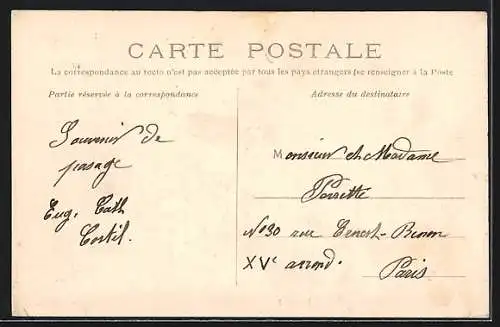 CARTE POSTALE
La correspondance au recto n'est pas acceptée par tous les pays étrangers (se renseigner à la Poste
Partie réservée à la correspondance
Adresse du destinataire
Souvenir de
passage
Eug. Cath
Costil.
Monsieur et Madame
Poirette
N° 30 rue Ernest-Renan
XVe arrond.
Paris